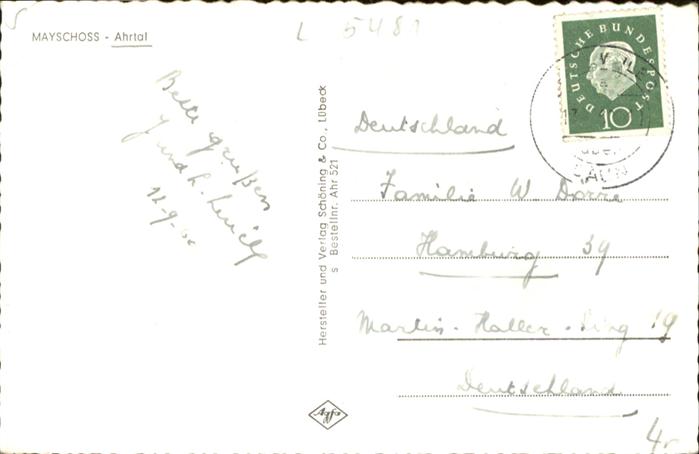 L 5481
MAYSCHOSS - Ahrtal
DEUTSCHE BUNDESPOST
10
über
DAUN
Beste grüßen
12-9-60
Hersteller und Verlag Schöning & Co., Lübeck
s Bestellnr. Ahr 521
Deutschland
Familie W. Dorre
Hamburg 39
Martin-Haller-Ring 19
Deutschland
Agfa
4,-